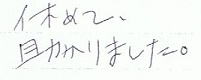 休めて、
助かりました。